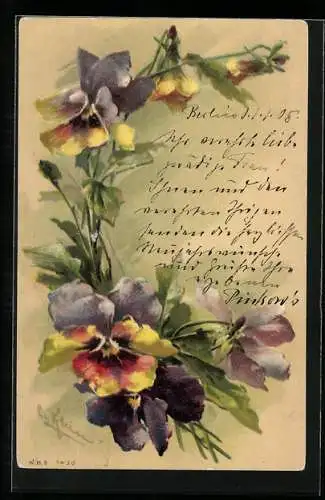 Berlin d. 1.1.08.
Sehr verehrte liebe
gnädige Frau!
Ihnen und den
verehrten Ihrigen
senden die herzlichsten
Neujahrswünsche
und Grüße Ihre
ergebenen
C. Klein